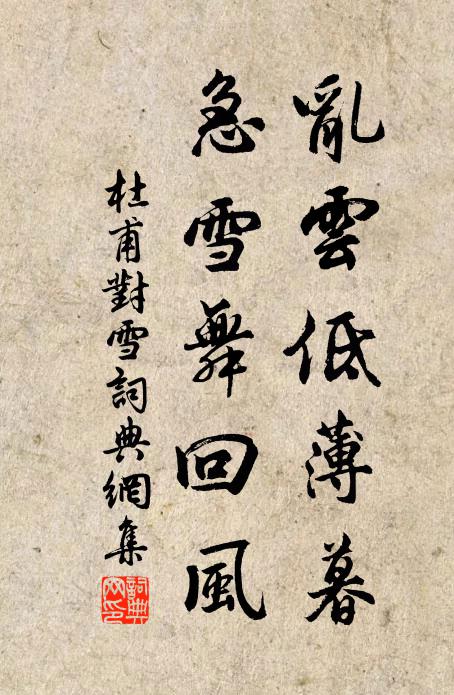 亂雲低薄暮
急雪舞回風
杜甫對雪詞典網集
詞典網印